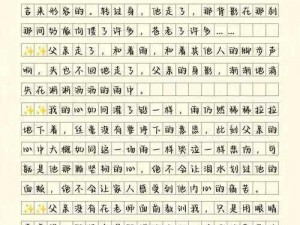 言来形容的。转过身，他走了，那背影在那刹
那间彷彿佝偻了许多，苍老了许多……
✨✨父亲走了，和着雨，和着其他人的脚步声
响，头也不回地走了，父亲的身影，渐渐地消
失在潮潮洒洒的雨中。
✨✨我的心如同灌了铅一样，雨仍然稀稀拉拉
地下着，丝毫没有要停下的意思，此刻父亲的
心中大概如同这一场雨一样凌迟一样悲雨，可
就是他那颗坚韧的心，他不会让泪水划过他的
面颊，他不会让家人感受到他内心的痛苦。
✨✨父亲没有在老师面前教训我，只是用眼睛